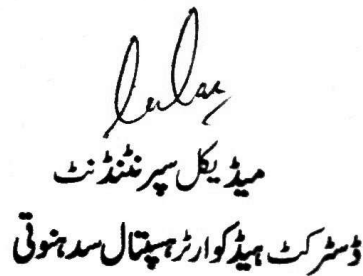 میڈیکل سپرنٹنڈنٹ
ڈسٹرکٹ ہیڈکوارٹر ہسپتال سدہنوتی